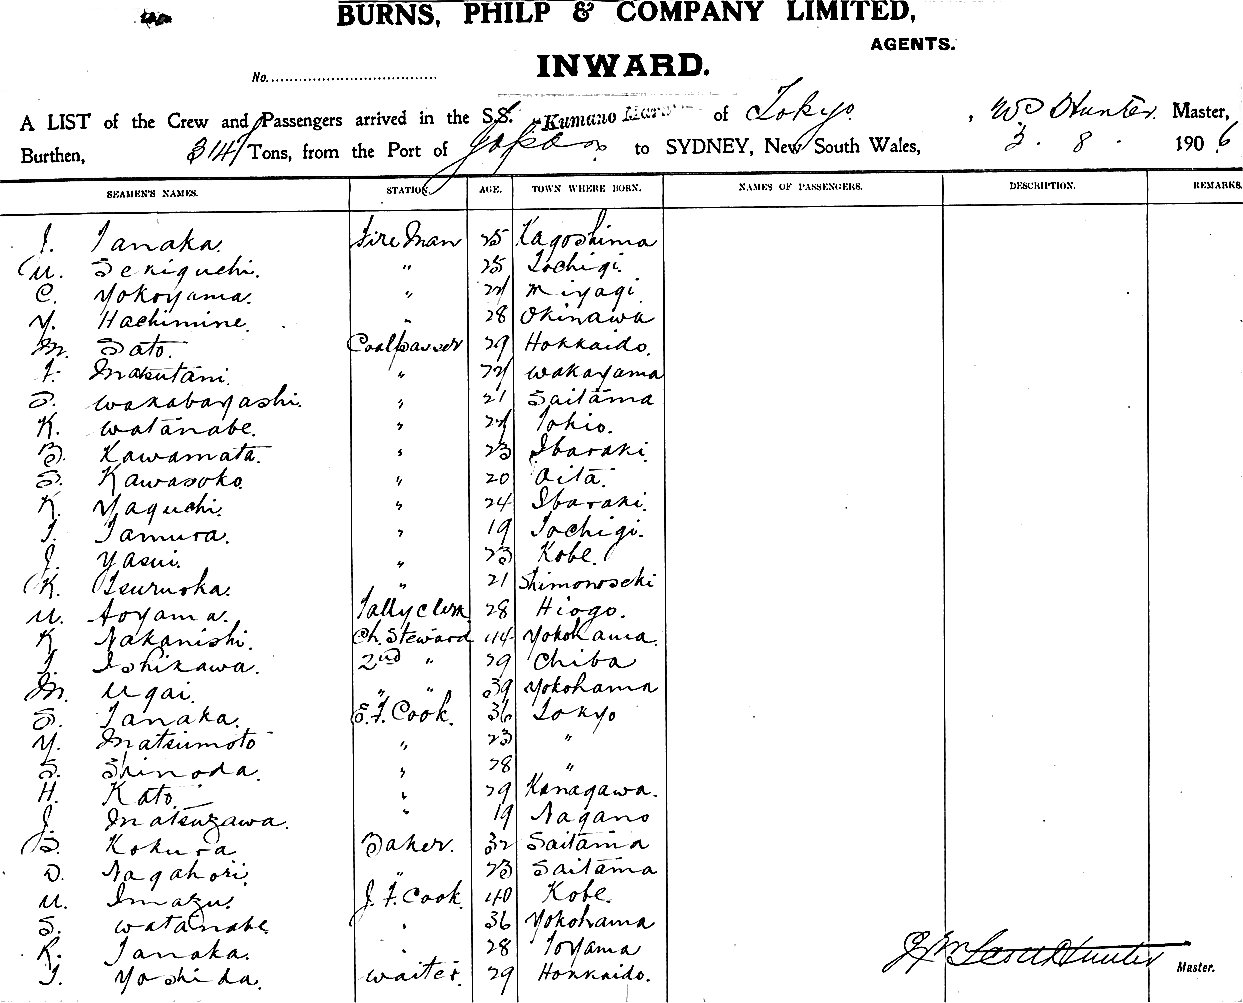 BURNS, PHILP & COMPANY LIMITED,
AGENTS.
INWARD.
No.
A LIST of the Crew and Passengers arrived in the S.S. Kumano Maru of Tokyo, W Hunter Master,
Burthen, Tons, from the Port of Japan to SYDNEY, New South Wales, 3. 8. 1906
SEAMEN'S NAMES. STATION. AGE. TOWN WHERE BORN. NAMES OF PASSENGERS. DESCRIPTION. REMARKS
J. Tanaka. Fireman 25 Kagoshima
U. Sekiguchi. " 25 Tochigi.
C. Yokoyama. " 24 Miyagi
Y. Hachimine. " 28 Okinawa
M. Sato. Coalpasser 29 Hokkaido.
" Wakayama
S. Wakabayashi. " 21 Saitama
K. Watanabe. " 24 Tokio.
B. Kawamata. " 23 Ibaraki.
S. Kawasoko. " 20
K. Yaguchi. " 24 Ibaraki.
T. Tamura. " 19 Tochigi.
J. Yasui. " 23 Kobe.
K. Tsuruoka. " 21 Shimonoseki
U. Aoyama. Tally clerk 28 Hiogo.
K. Nakanishi. Ch. Steward 44 Yokohama.
T. Ishikawa. 2nd " 29 Chiba
M. Ugai. " " 39 Yokohama
S. Tanaka. S.F. Cook. 36 Tokyo
Y. Matsumoto " 23 "
S. Shinoda. " 28 "
H. Kato. " 29 Kanagawa.
J. Matsuzawa. " 19 Nagano
S. Kokura Baker. 32 Saitama
D. Nagahori. " 23 Saitama
U. Imazu. J.F. Cook. 40 Kobe.
S. Watanabe " 36 Yokohama
K. Tanaka. " 28 Toyama
T. Yoshida. Waiter. 29 Hokkaido.
Hunter Master.